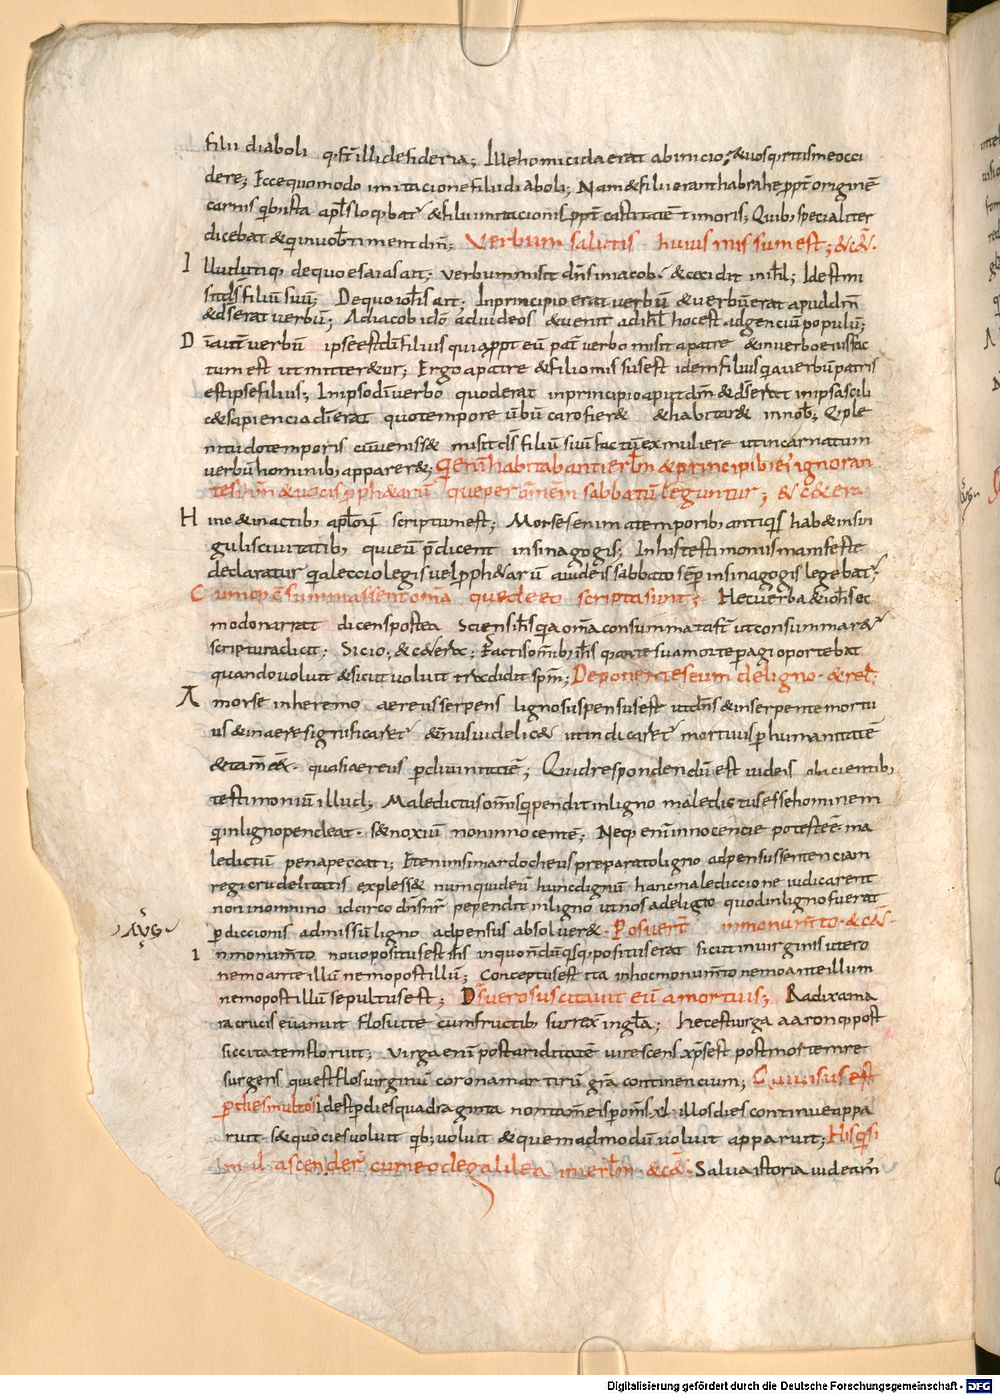 filii diaboli q; fr̄ illi desideria; Ille homicida erat ab inicio; & uos q̄ritis me occi
dere; Ecce quomodo imitacione filii diaboli; Nam & filii erant habrahe ꝓpt̄ originē
carnis q̄b; ista apl̄s loq̄bat̄ & filii imitacionis ꝓpt̄ castitatē timoris; Quib; specialiter
dicebat & q̄ in uob̄ timent dm̄; Verbum salutis huius missum est; & c&̄.
Illud utiq; de quo esaias ait; verbum misit dn̄s in iacob & cecidit in isrl̄; Idest mi
sit ds̄ filiū suū; De quo ioh̄s ait; In principio erat verbū & verbū erat apud dm̄
& ds̄ erat verbū; Ad iacob id ē ad iudeos & uenit ad isrl̄ hoc est ad genciū populū;
D
verbū ipse est dī filius qui ꝓpt̄ eū pat̄ verbo misit a patre & in verbo eius fac
tum est ut mitter&ur; Ergo a patre & filio missus est idem filius q̄a verbū patris
est ipse filius; In ipso dī verbo quod erat in principio aput dm̄ & ds̄ erat in ipsa scili
c& sapiencia dī erat quo tempore ūbū caro fier& & habitar& in nob̄; Q̄ ple
nitudo temporis cū ueniss& misit ds̄ filiū suū factū ex muliere ut incarnatum
verbū hominib; apparer&; Q̄ enī habitabant ierlm̄ & principib; ei; ignoran
tes hm̄ & uocis ꝓph&arū que per om̄em sabbatū leguntur; & c&era
Hinc & in actib; apl̄orū scriptum est; Moises enim a temporib; antiq̄s hab& in sin
gulis ciuitatib; qui eū p̄dicent in sinagogis; In his testimoniis manifeste
declaratur q̄a leccio legis uel ꝓph&arū a iudeis sabbato sēp in sinagogis legebat̄;
Cumq; ēsummassent om̄a que de eo scripta sunt; Hec ūerba & ioh̄s ec
modo narrat dicens postea Sciens ih̄s q̄a om̄a consummata st̄ ut consummar&̄
scriptura dicit; Sicio; & c&era; Factis om̄ib; ih̄s q̄ ante sua morte pagi oportebat
quando voluit & sicut voluit tradidit spm̄; Deponentes eum de ligno & rel̄;
A morse in heremo aereus serpens ligno suspensus est ut dn̄s & in serpente mortu
us & in aere significaret̄ d̄nus uidelic& ut indicaret̄ mortuus p humanitatē
& tam̄ ex quasi aereus p diuinitatē; Quid respondendū est iudeis obicientib;
testimoniū illud; Maledictus om̄is q̄ pendit in ligno maledictus esse hominem
q̄ in ligno pendeat; s& noxiū non innocentē; Neq; enī innocencie potest eē ma
ledictū pena peccati; Etenim si mardocheus preparato ligno adpensus sentenciam
regi crudelitatis expless& numquid eū hunc dignū hanc malediccione iudicarent
non in omnino idcirco dn̄s nr̄ pependit in ligno ut nos a deligto quod in ligno fuerat
pdiccionis admissū ligno adpensus absoluer&. Posuert̄ in monum̄to & c&̄.
In monum̄to nouo positus est ih̄s in quo nondū q̄sq; positus erat sicut in uirginis utero
nemo ante illū nemo post illū; Conceptus est ita in hoc monum̄to nemo ante illum
nemo post illū sepultus est; Ds̄ uero suscitauit eū a mortuis; Radix ama
ra crucis euanuit flos uite cum fructib; surrex̄ in gl̄a; hec est uirga aaron q̄ post
siccitatem floruit; virga enī post ariditatē virescens xp̄s est post mortem re
surgens qui est flos uirginū corona martirū grā continencium; Qui uisus est
p dies multos; idest p dies quadraginta non tam̄ eis p om̄s xl illos dies continue appa
ruit; s& quocies voluit q̄b; voluit & quemadmodū voluit apparuit; His q̄ si
mul ascender̄ cum eo de galilea in ierlm̄ & c&̄. Salua istoria uideam̄